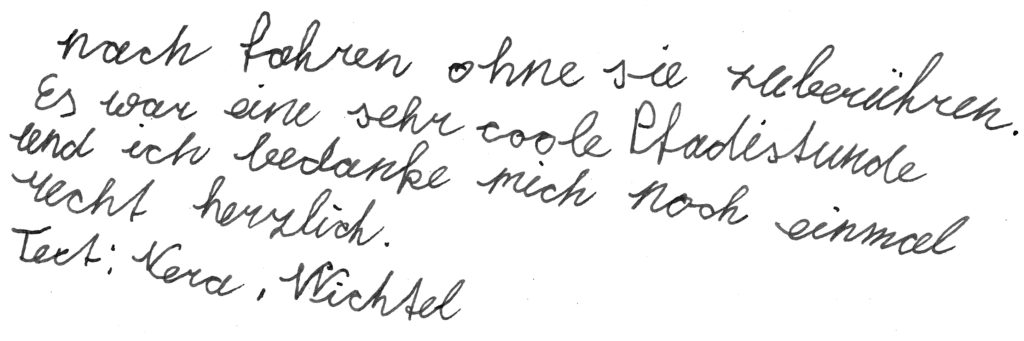 nach fahren ohne sie zuberühren.
Es war eine sehr coole Pfadistunde
und ich bedanke mich noch einmal
recht herzlich.
Text: Vera, Wichtel